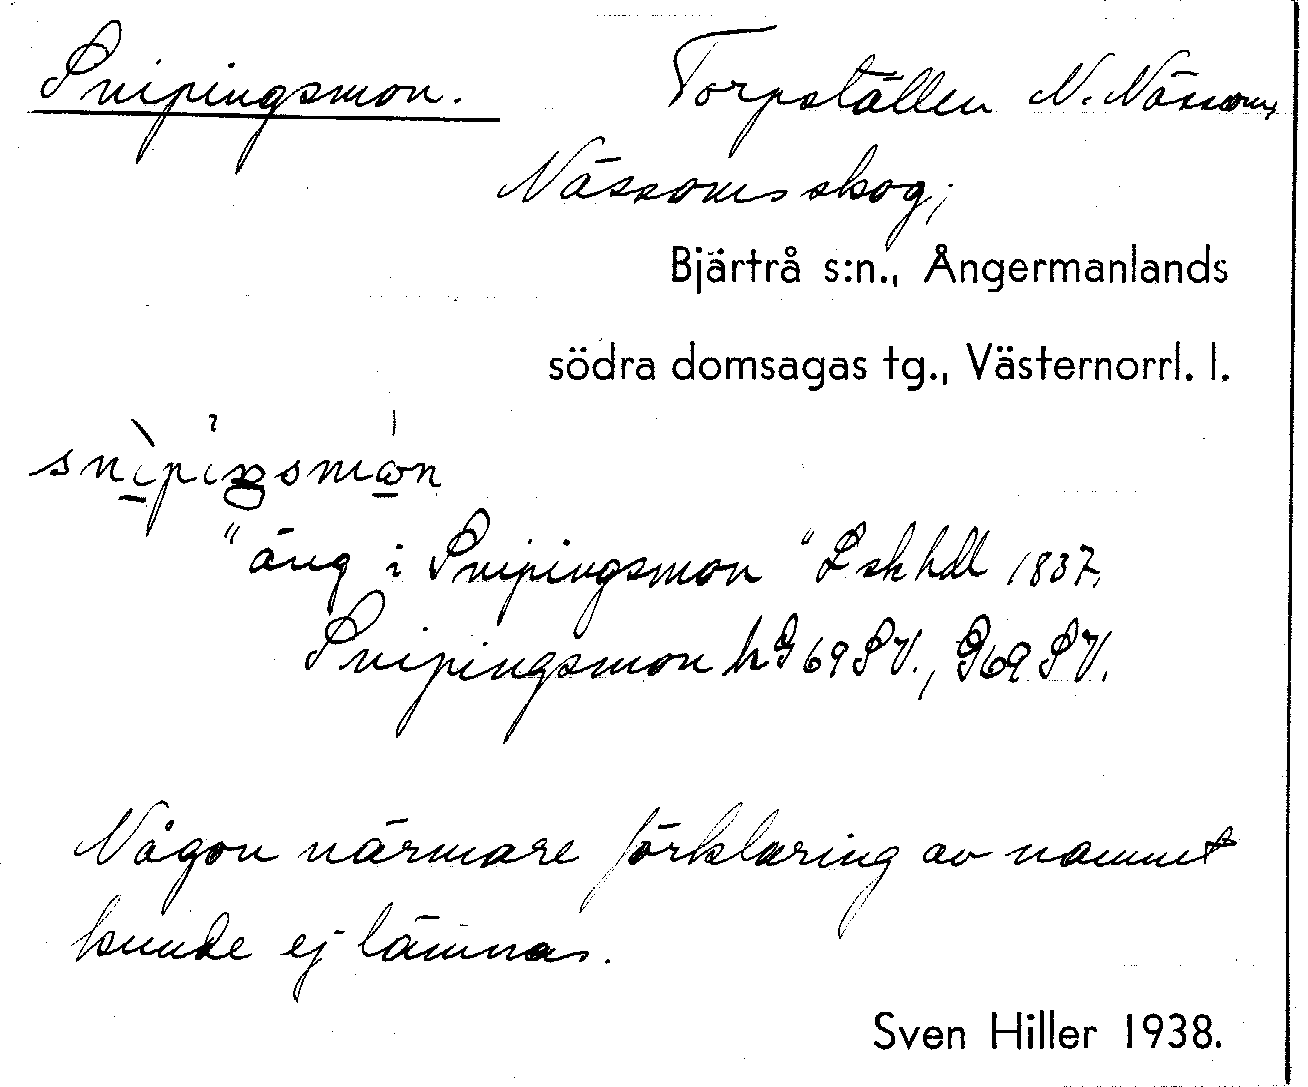 Snipingsmon. Torpställen N. Nässom,
Nässoms skog;
Bjärtrå s:n., Ångermanlands
södra domsagas tg., Västernorrl. l.
snipiŋsmɷn
"äng i Snipingsmon" Lskhdl 1837,
Snipingsmon hG69SV., G69SV.
Någon närmare förklaring av namnet
kunde ej lämnas.
Sven Hiller 1938.